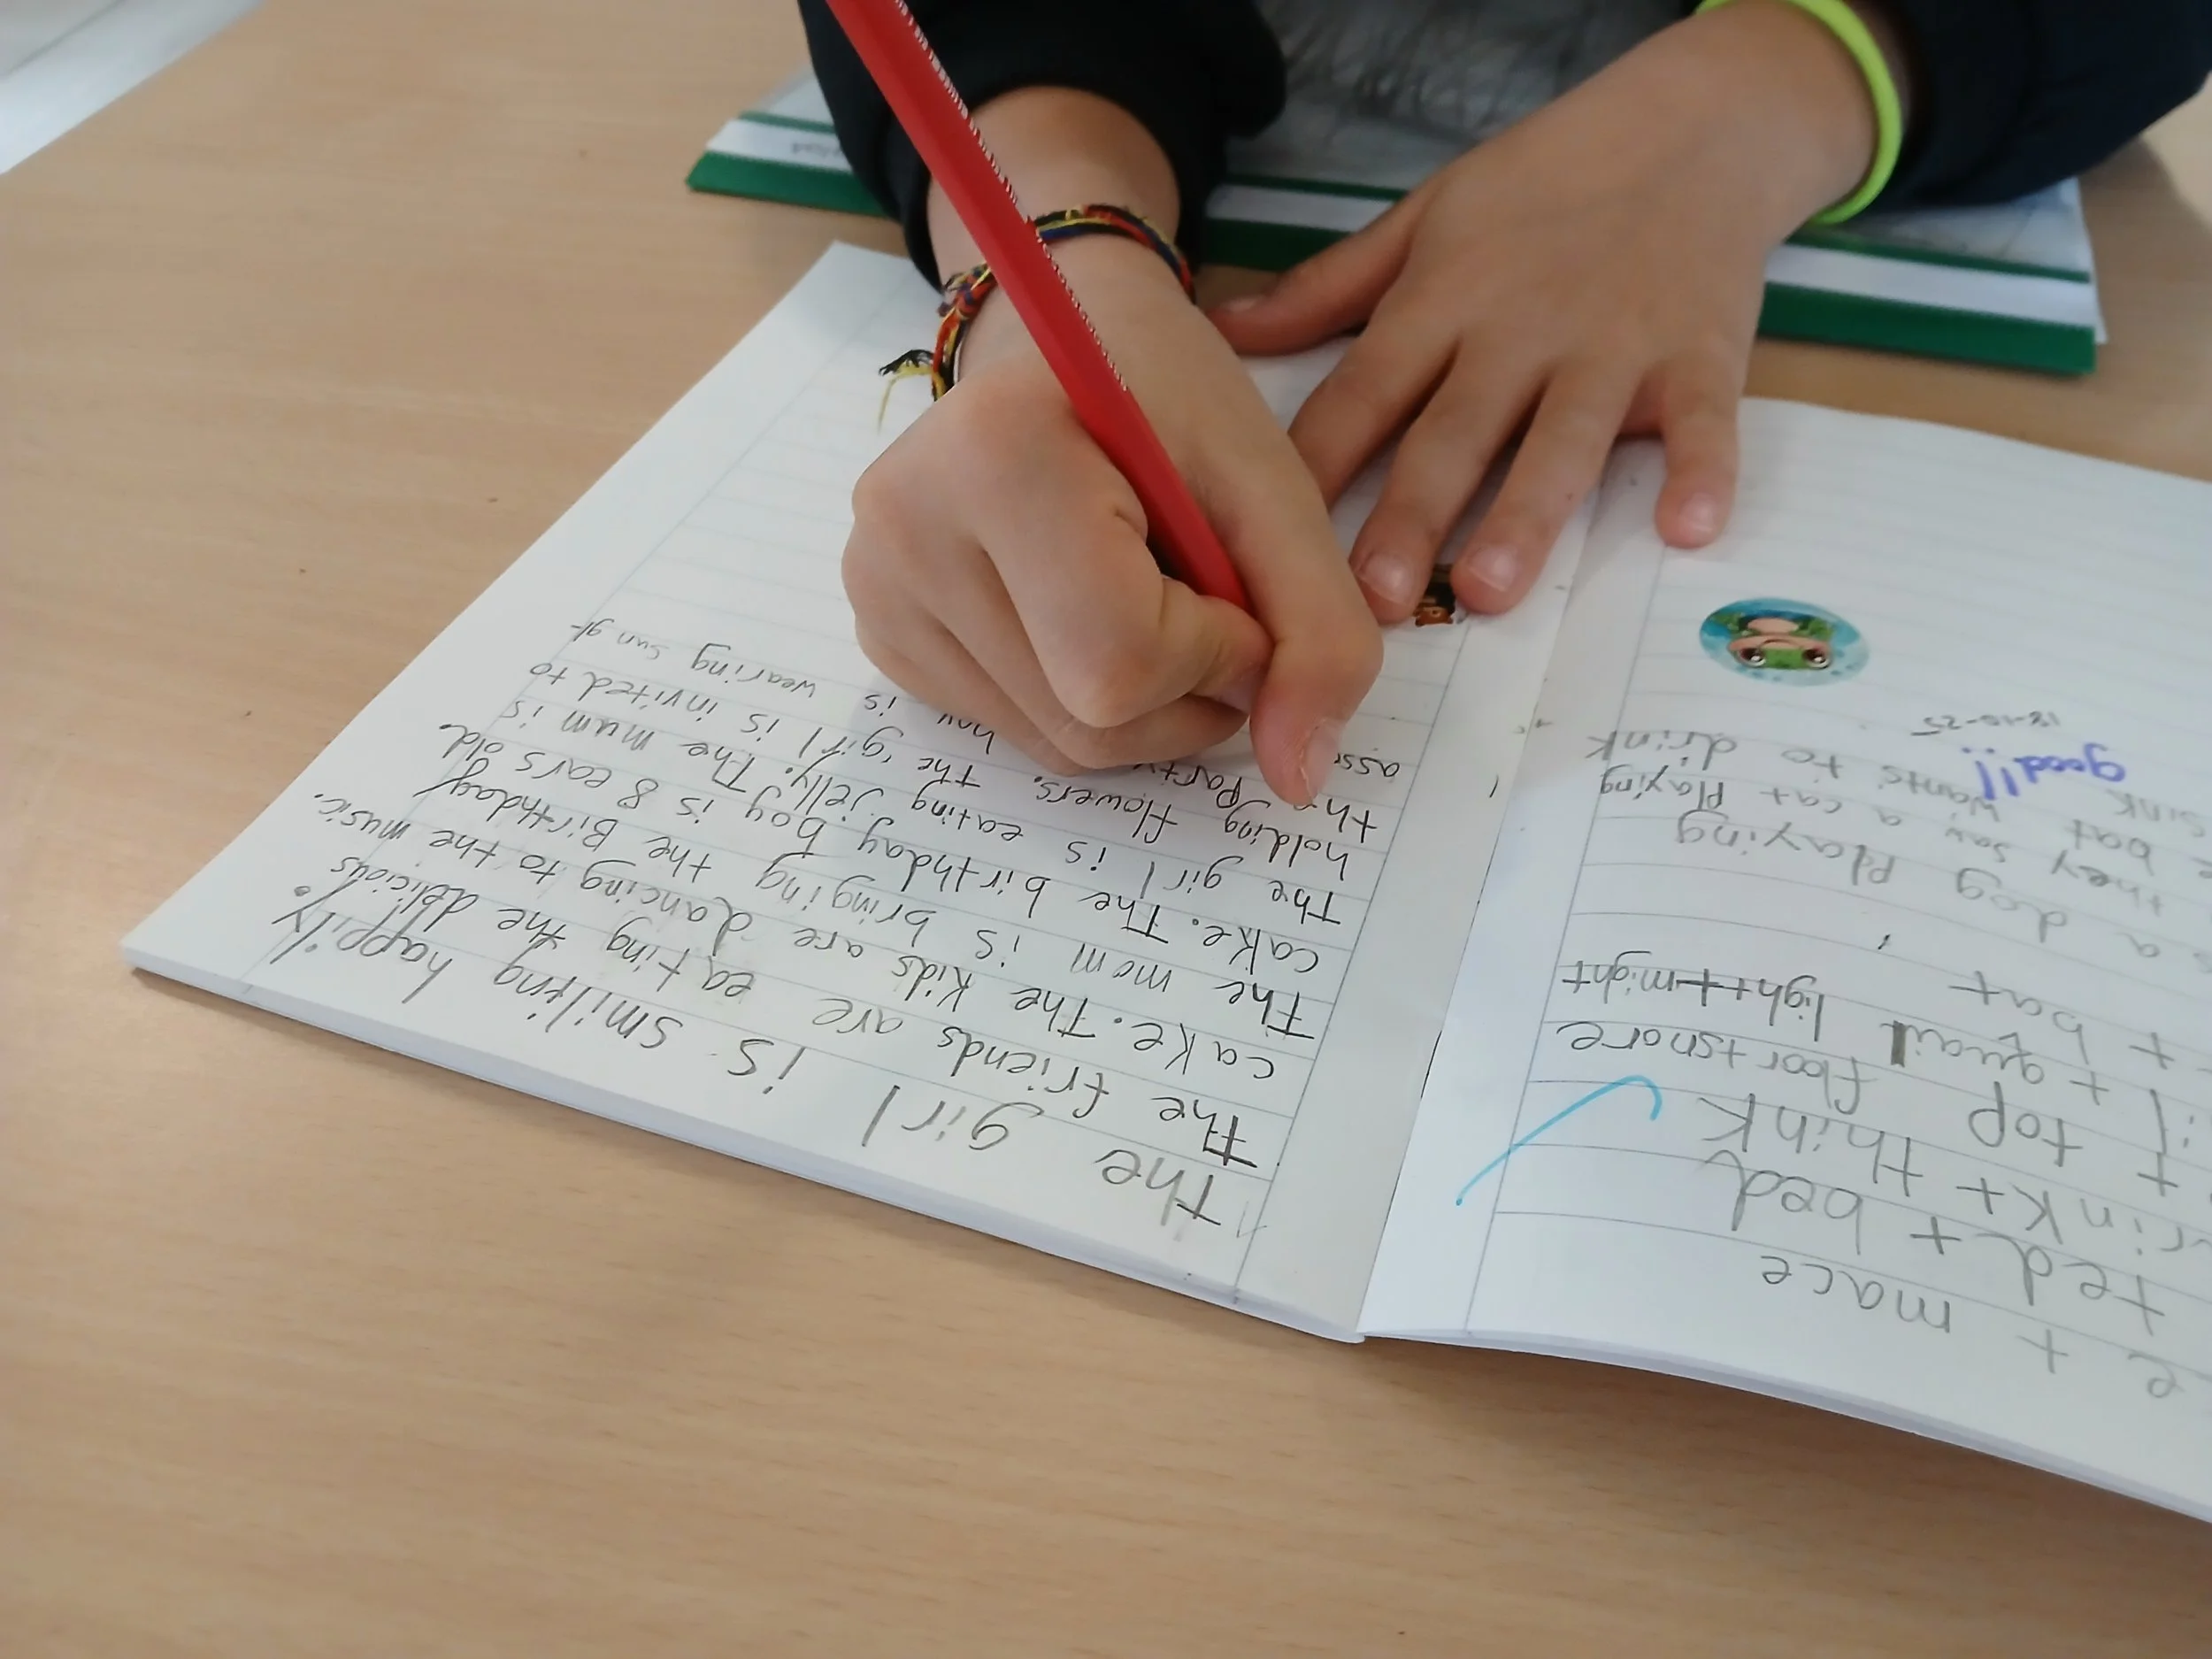 e + mace
ted + bed
rink + think
t top floor + snore
+ quail light + might
t bat
s a dog Playing
they saw a cat Playing
e bat wants to drink
sink good!!
The girl is smiling happily.
The friends are eating the delicious
cake. The kids are dancing to the music.
The mom is bringing the Birthday
cake. The birthday boy is 8 ears old.
The girl is eating jelly. The mum is
holding flowers. The girl is invited to
the Party is wearing sun gl-